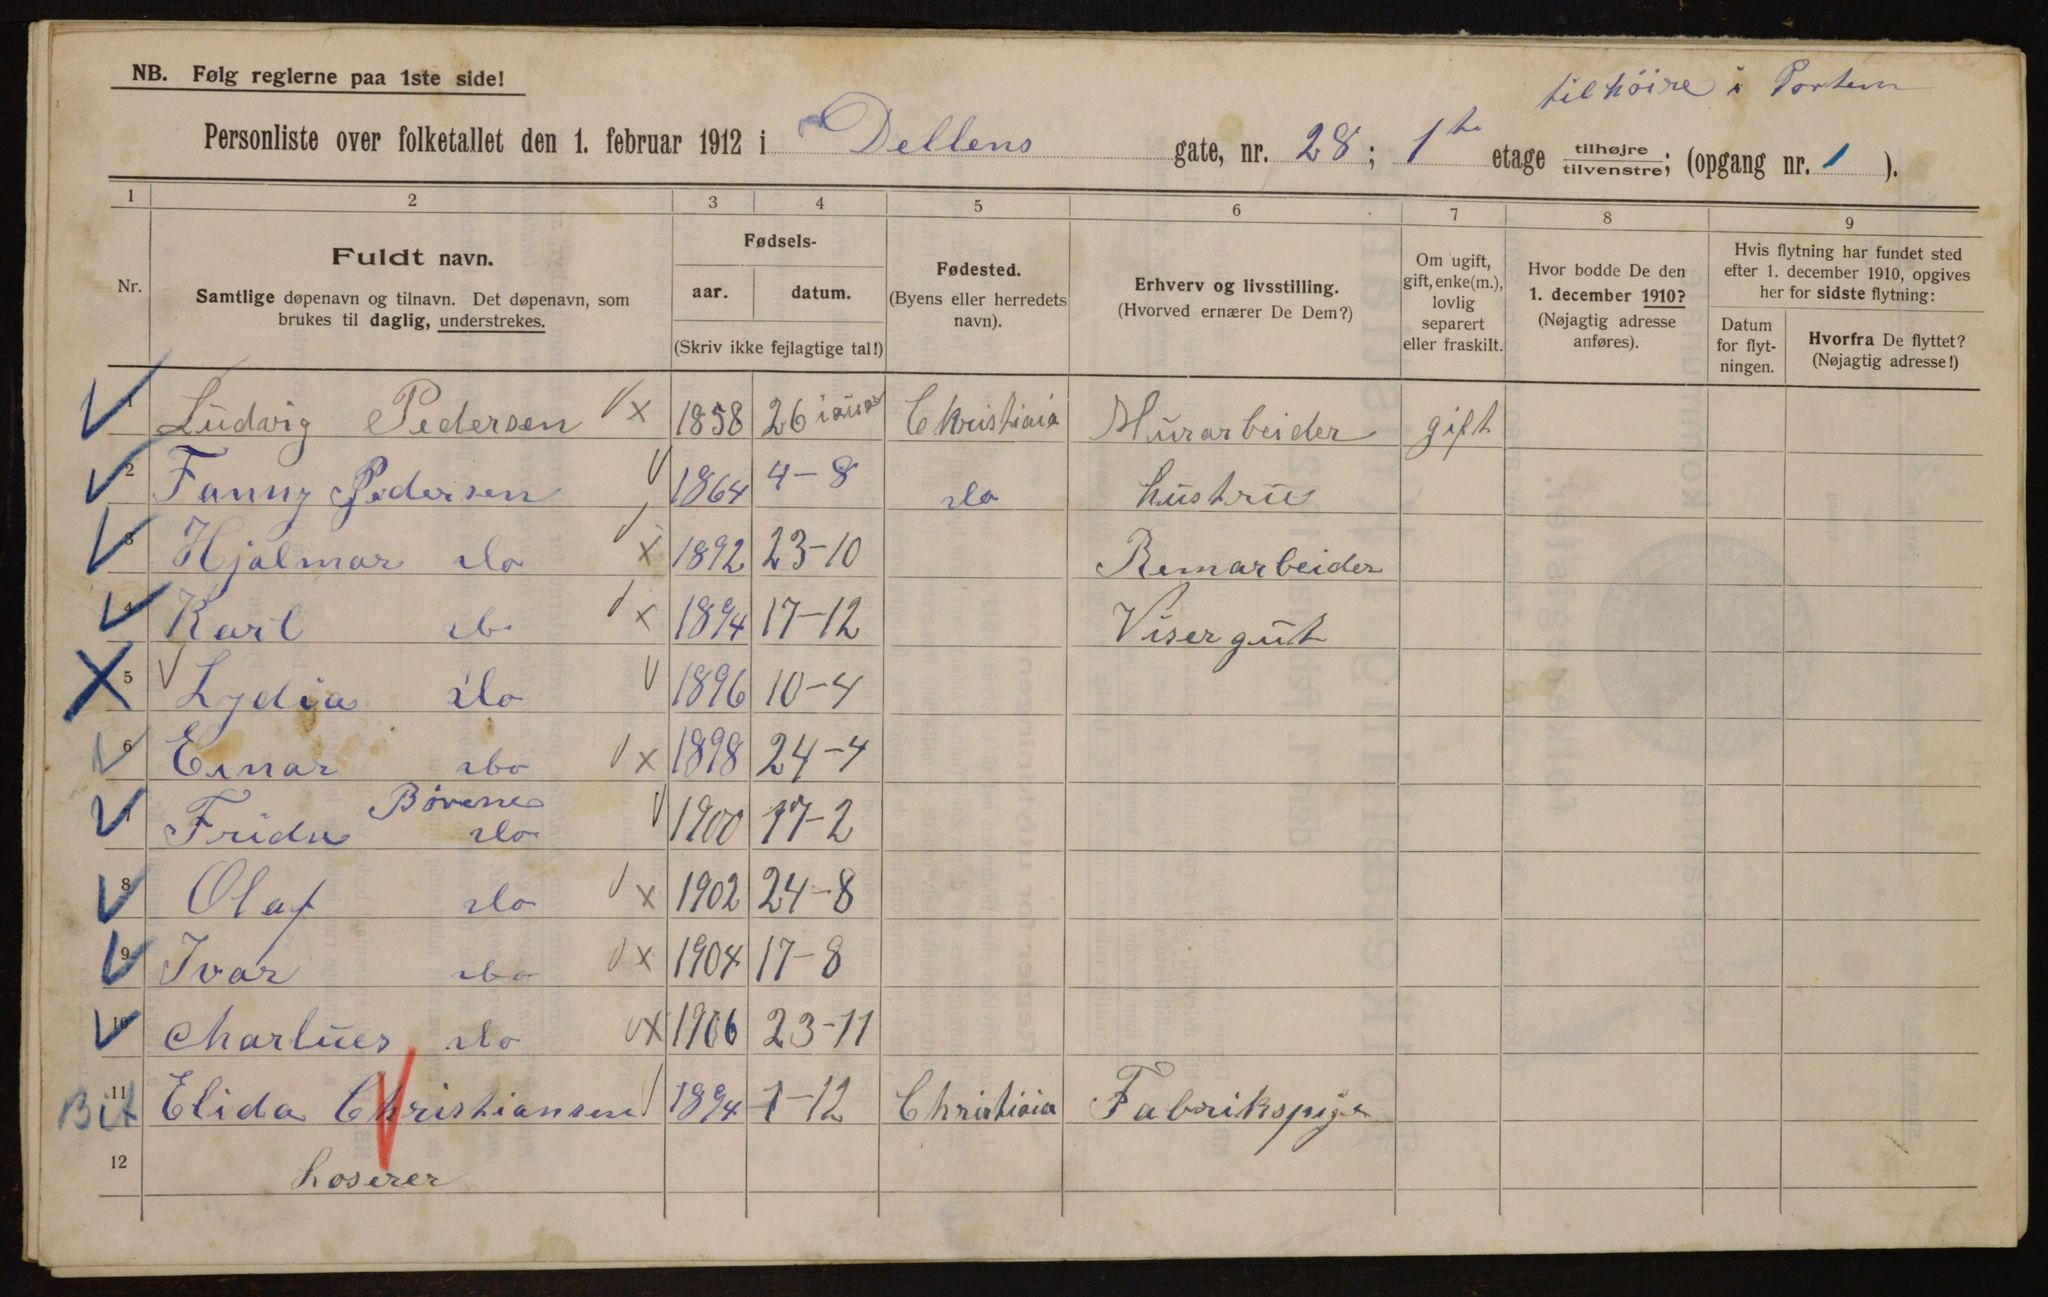 tilhöire i Porten
NB. Følg reglerne paa 1ste side!
Personliste over folketallet den 1. februar 1912 i Dellens gate, nr. 28; 1te etage tilhøjre/tilvenstre; (opgang nr. 1).
1 2 3 4 5 6 7 8 9
Nr.
Fuldt navn.
Samtlige døpenavn og tilnavn. Det døpenavn, som
brukes til daglig, understrekes.
Fødsels-
aar. datum.
(Skriv ikke fejlagtige tal!)
Fødested.
(Byens eller herredets
navn).
Erhverv og livsstilling.
(Hvorved ernærer De Dem?)
Om ugift,
gift, enke(m.),
lovlig
separert
eller fraskilt.
Hvor bodde De den
1. december 1910?
(Nøjagtig adresse
anføres).
Hvis flytning har fundet sted
efter 1. december 1910, opgives
her for sidste flytning:
Datum
for flyt-
ningen.
Hvorfra De flyttet?
(Nøjagtig adresse!)
1 Ludvig Pedersen x 1858 26 Christiaia Murarbeider gift
2 Fanny Pedersen 1864 4-8 do hustru
3 Hjalmar do x 1892 23-10 Remarbeider
4 Karl do x 1894 17-12 Visergut
5 Lydia do 1896 10-4
6 Einar do x 1898 24-4
Børene
7 Frida do 1900 17-2
8 Olaf do x 1902 24-8
9 Ivar do x 1904 17-8
10 Marlues do x 1906 23-11
11 Elida Christiansen 1894 1-12 Christiaia Fabrikspige
12 Loserer